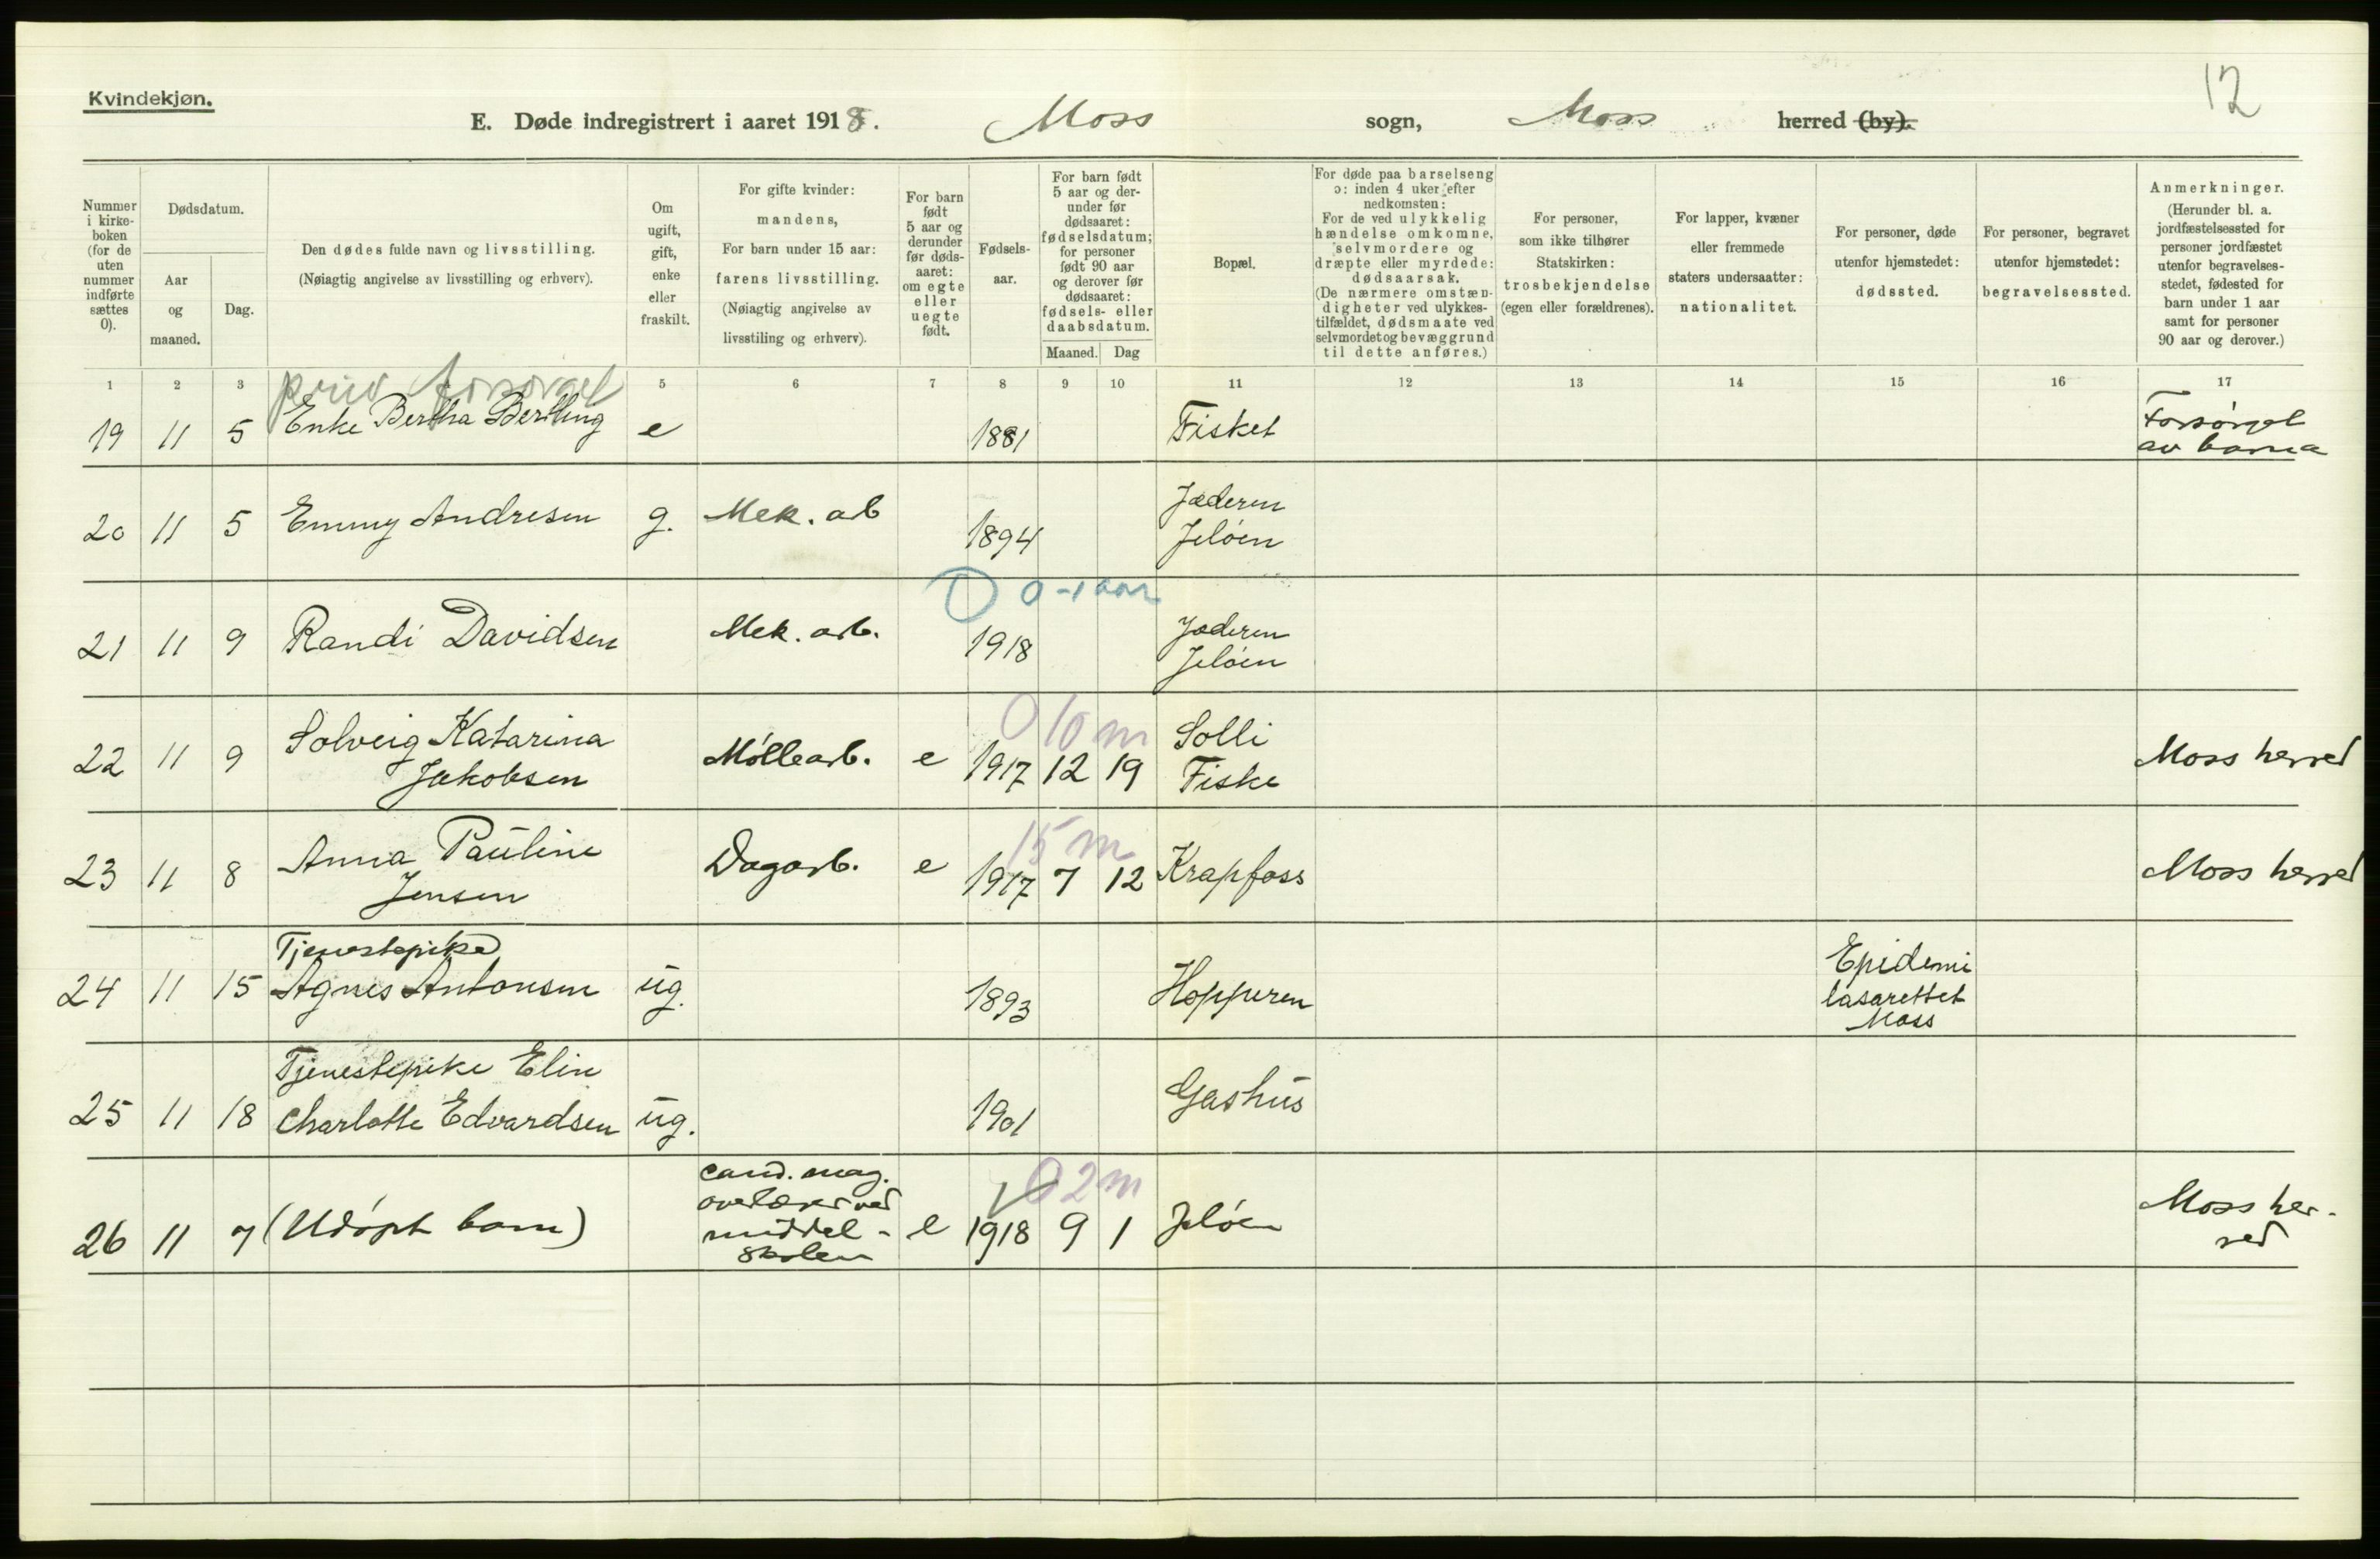 Kvindekjøn.
12
E. Døde indregistrert i aaret 1918. Moss sogn, Moss herred (by).
Nummer i kirkeboken (for de uten nummer indførte sættes 0).
Dødsdatum.
Aar og maaned.
Dag.
Den dødes fulde navn og livsstilling.
(Nøiagtig angivelse av livsstilling og erhverv).
Om ugift, gift, enke eller fraskilt.
For gifte kvinder: mandens,
For barn under 15 aar: farens livsstilling.
(Nøiagtig angivelse av livsstiling og erhverv).
For barn født 5 aar og derunder før dødsaaret: om egte eller uegte født.
Fødselsaar.
For barn født 5 aar og derunder før dødsaaret: fødselsdatum; for personer født 90 aar og derover før dødsaaret: fødsels- eller daabsdatum.
Maaned. Dag
Bopæl.
For døde paa barselseng ɔ: inden 4 uker efter nedkomsten:
For de ved ulykkelig hændelse omkomne, selvmordere og dræpte eller myrdede: dødsaarsak.
(De nærmere omstændigheter ved ulykkestilfældet, dødsmaate ved selvmordet og bevæggrund til dette anføres.)
For personer, som ikke tilhører Statskirken: trosbekjendelse (egen eller forældrenes).
For lapper, kvæner eller fremmede staters undersaatter: nationalitet.
For personer, døde utenfor hjemstedet: dødssted.
For personer, begravet utenfor hjemstedet: begravelsessted.
Anmerkninger.
(Herunder bl. a. jordfæstelsessted for personer jordfæstet utenfor begravelsesstedet, fødested for barn under 1 aar samt for personer 90 aar og derover.)
1 2 3 5 6 7 8 9 10 11 12 13 14 15 16 17
priv forsørget
19 11 5 Enke Bertha Bertling e 1881 Fisket Forsørget
av barna
20 11 5 Emmy Andresen g. Mek. arb 1894 Jæderen
Jeløen
0-1 aar
21 11 9 Randi Davidsen Mek. arb. 1918 Jæderen
Jeløen
0 10 m
22 11 9 Solveig Katarina
Jakobsen Møllearb. e 1917 12 19 Solli
Fiske Moss herred
15 m
23 11 8 Anna Pauline
Jensen Dagarb. e 1917 7 12 Krapfoss Moss herred
24 11 15 Tjenestepike
Agnes Antonsen ug. 1893 Hopperen Epidemi
lasarettet
Moss
25 11 18 Tjenestepike Elin
Charlotte Edvardsen ug. 1901 Gashus
0 2 m
26 11 7 (Udøpt barn) cand. mag.
overlærer ved
middel-
skolen e 1918 9 1 Jeløen Moss her-
red